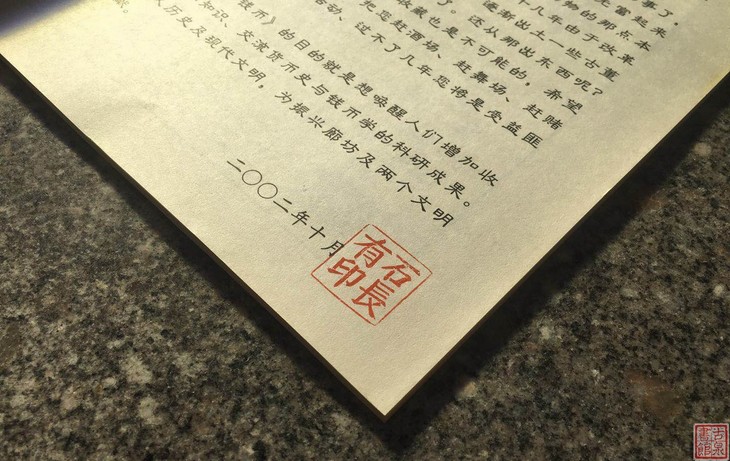 事了。
富起来
物的那点本
十几年由于改革
逐渐出土一些古董
了。还从那出东西呢?
收藏也是不可能的,希望
把您赶酒场、赶舞场、赶赌
活动、过不了几年您将是受益匪
钱币》的目的就是想唤醒人们增加收
知识、交流货币史与钱币学的科研成果。
历史及现代文明,为振兴廊坊及两个文明
献。
二〇〇二年十月
石長有印